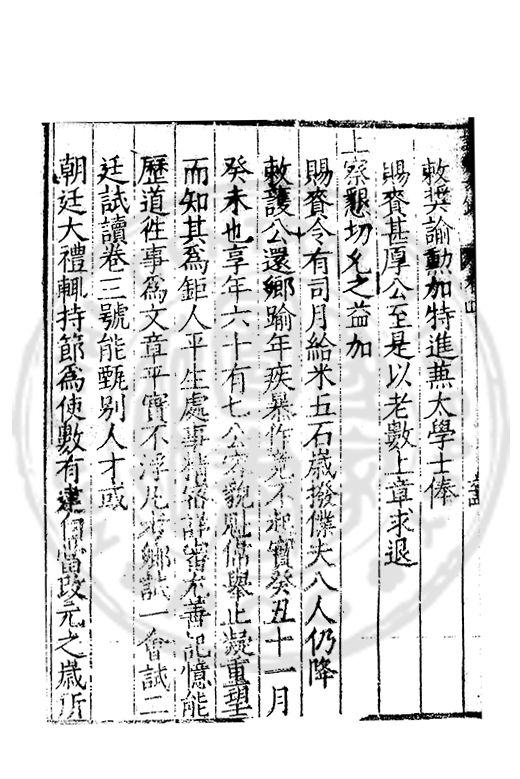 敕奬諭勲加特進兼太學士俸
賜賚甚厚公至是以老數上章求退
上察懇切允之益加
賜賚令有司月給米五石歲撥僕夫八人仍降
敕護公還鄉踰年疾暴作竟不起實癸丑十一月
癸未也享年六十有七公容貌魁偉舉止凝重望
而知其為鉅人平生處事精密詳審尤善記憶能
歷道徃事為文章平實不浮凡考鄉試一會試二
廷試讀卷三號能甄别人才或
朝廷大禮輙持節為使數有建當改元之歲所